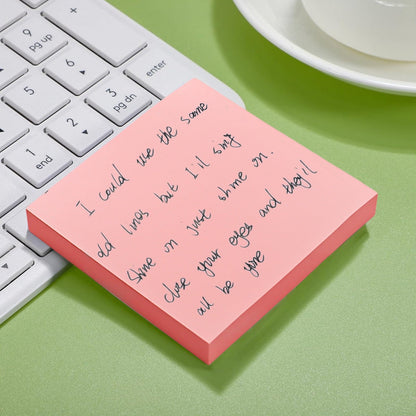 9
pg up
+
6
3
pg dn
enter
2
1
end
I could use the same
old lines but I'll sing
Shine on just shine on.
close your eyes and they'll
all be gone